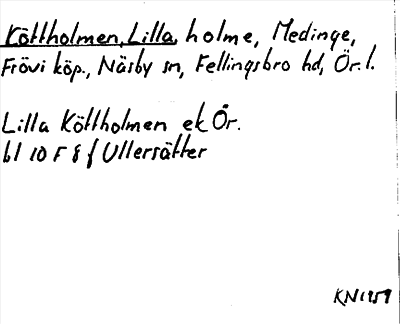 Köttholmen, Lilla, holme, Medinge,
Frövi köp., Näsby sn, Fellingsbro hd, Ör. l.
Lilla Köttholmen ek Ör.
bl 10 F 8 f Ullersätter
KN 1959